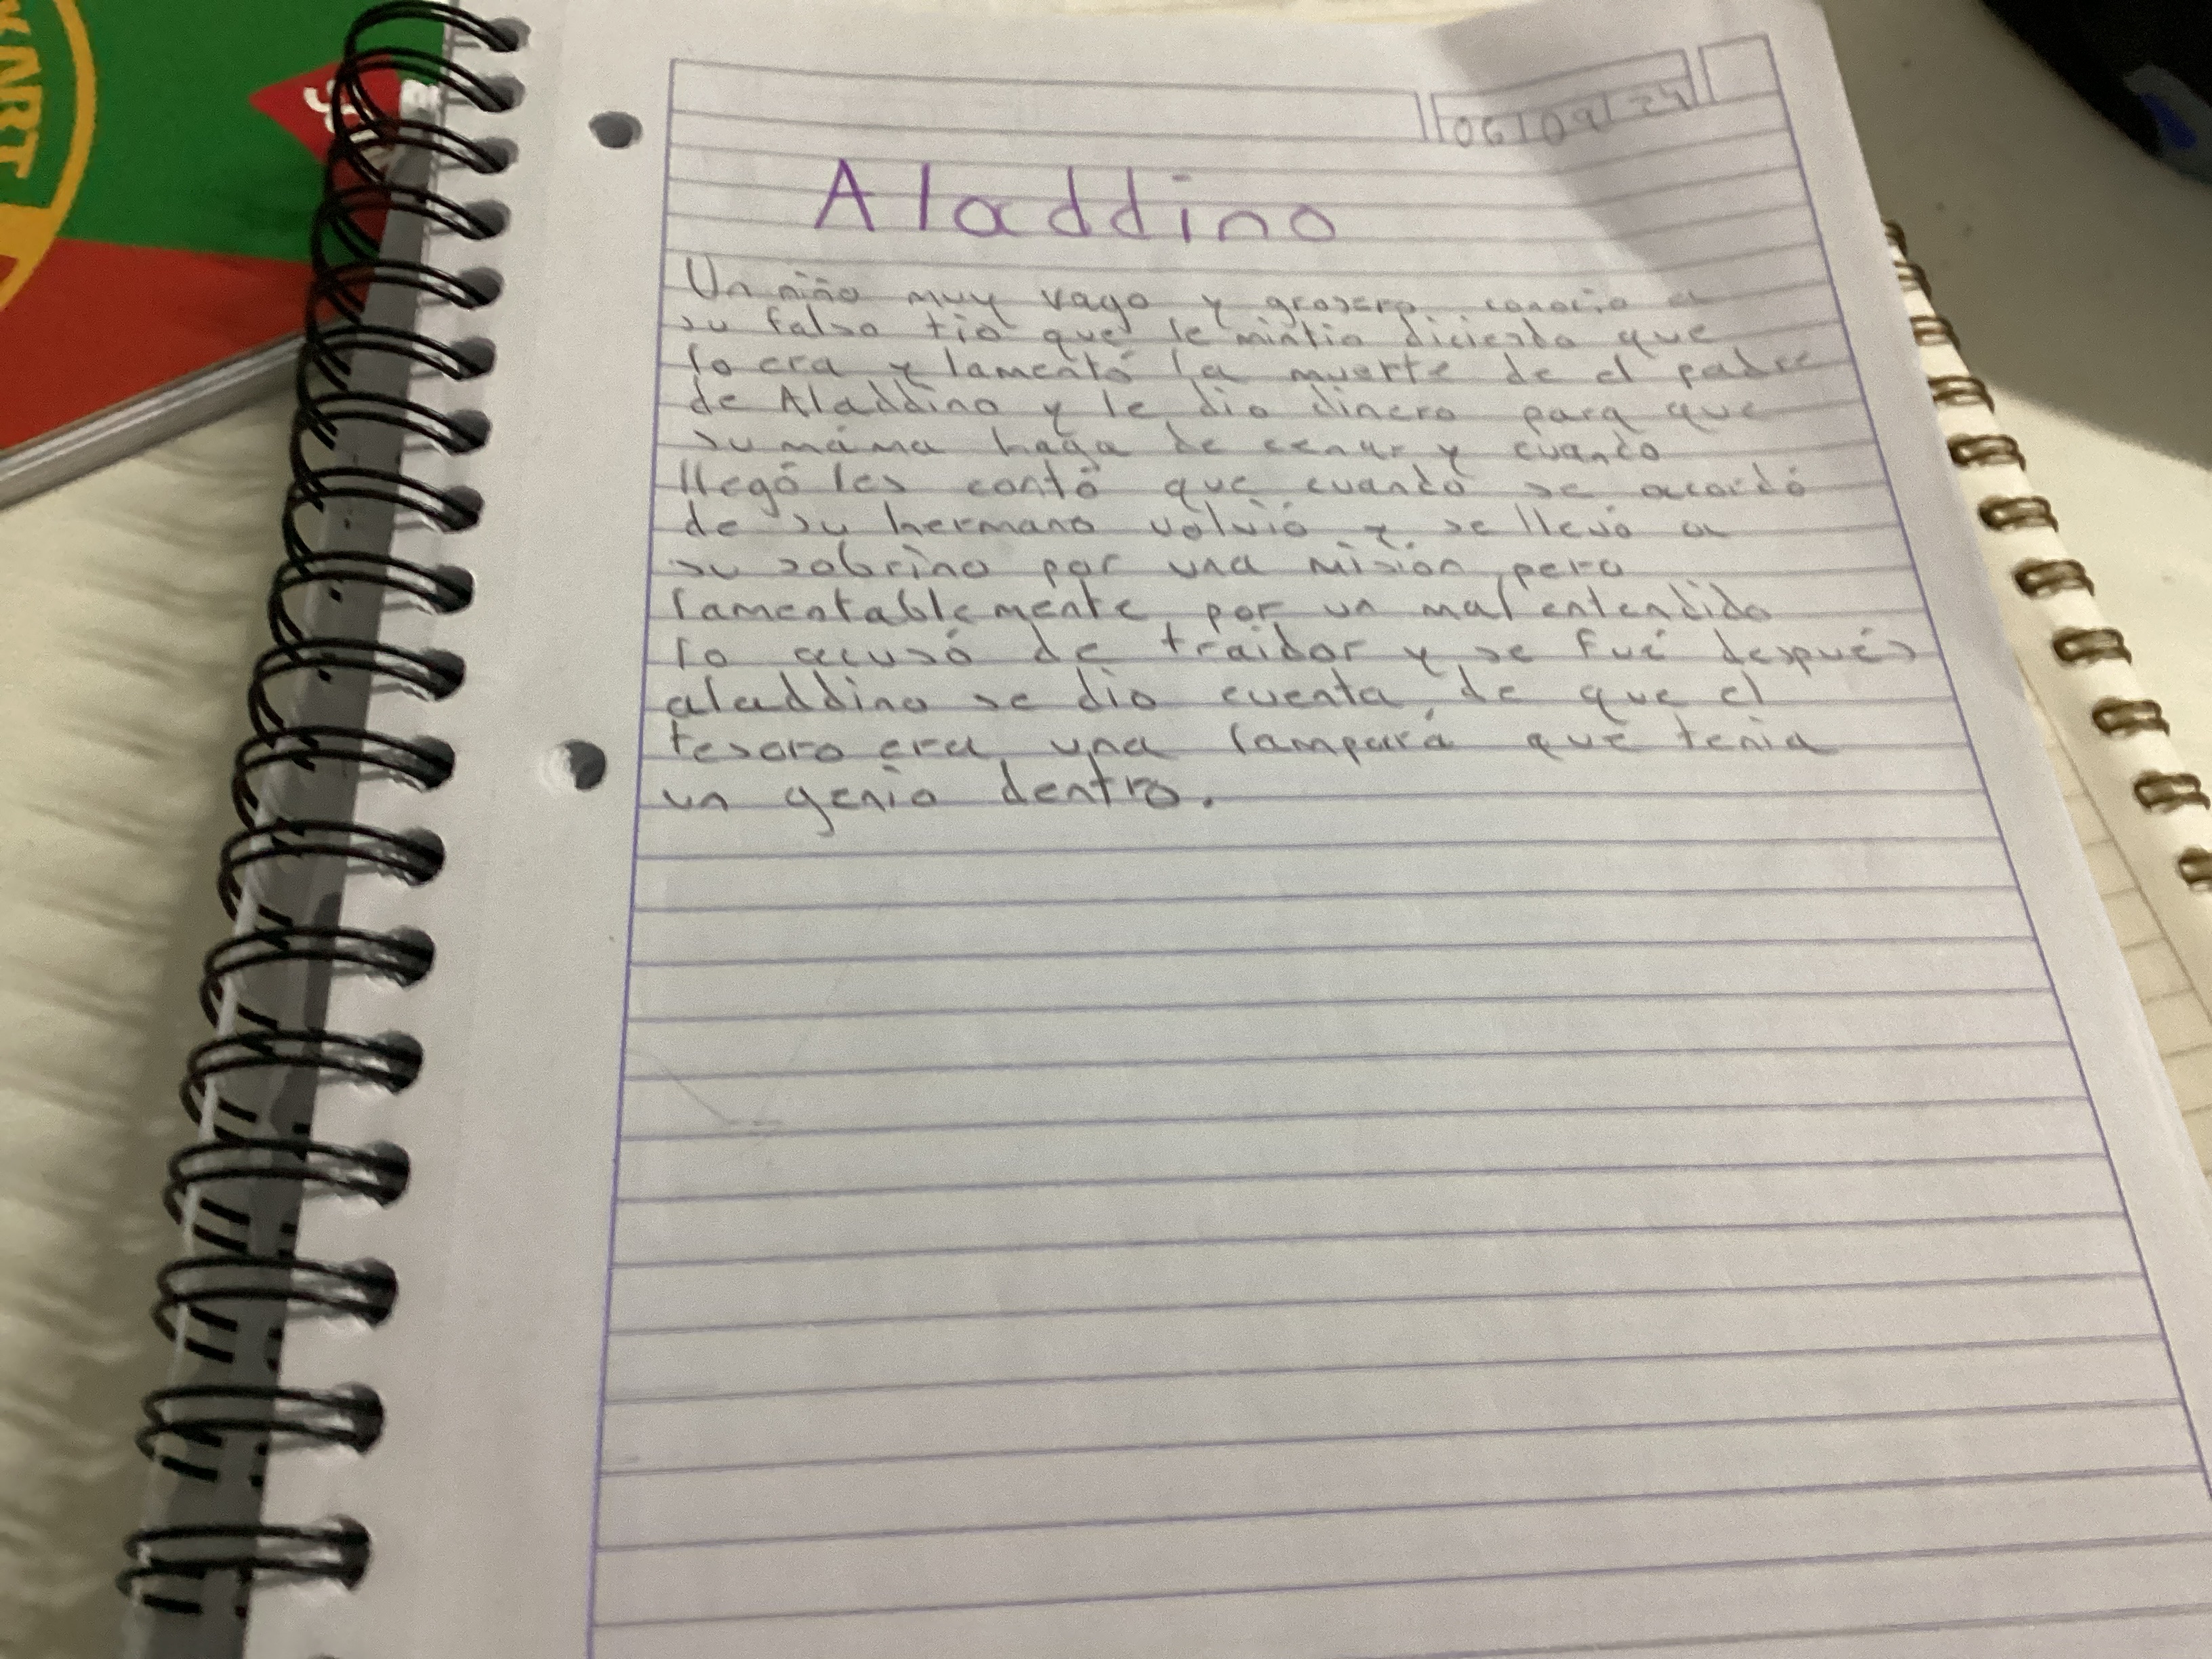 06/09/24
Aladdino
Un niño muy vago y grosero conocio a
su falso tio que le mintio diciendo que
lo era y lamentó la muerte de el padre
de Aladdino y le dio dinero para que
su mama haga de cenar y cuando
llegó les contó que cuando se acordó
de su hermano volvió y se llevó a
su sobrino por una misión, pero
lamentablemente por un mal entendido
lo acusó de traidor y se fué después
aladdino se dio cuenta de que el
tesoro era una lampara que tenia
un genio dentro.